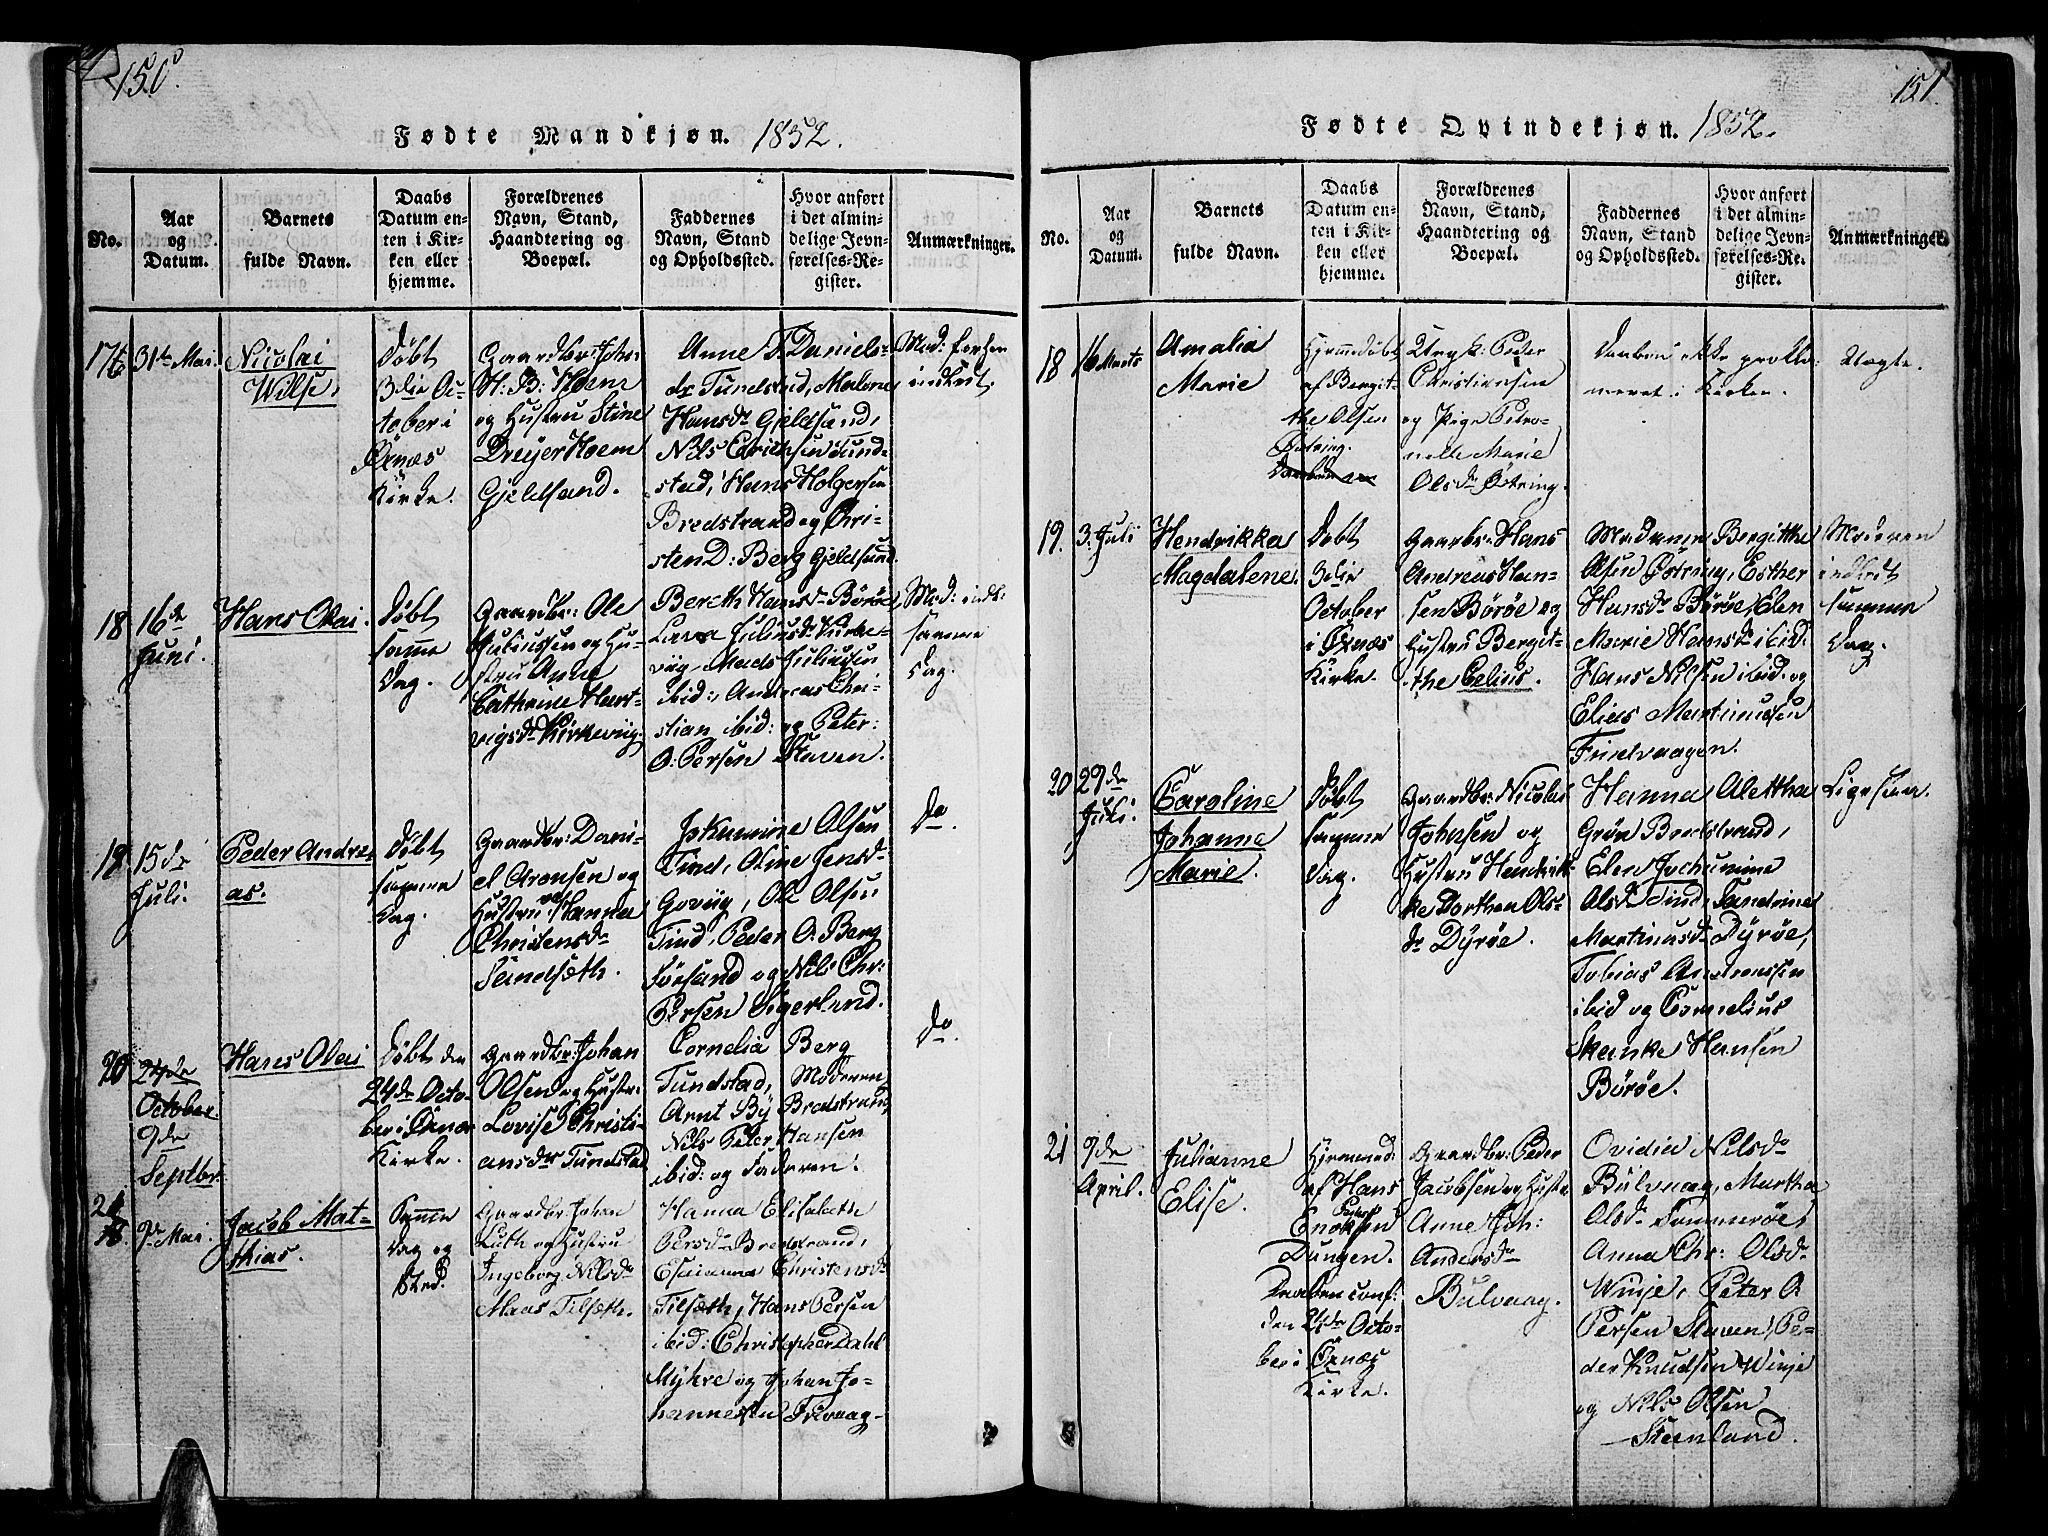 150.
Fødte Mandkjøn. 1852.
No.
Aar
og
Datum.
Barnets
fulde Navn.
Daabs
Datum en-
ten i Kir-
ken eller
hjemme.
Forældrenes
Navn, Stand,
Haandtering og
Boepæl.
Faddernes
Navn, Stand
og Opholdssted.
Hvor anført
i det almin-
delige Jevn-
førelses-Re-
gister.
Anmærkninger.
31te Mai.
Nicolai
Wilse.
Døbt
3die Oc-
tober i
Øxnæs
Kirke.
Gaardbr: Joh:
H. B: Hoem
og Hustru Stine
Dreyer Hoem
Gjeldsand.
Anne T. Daniels-
dr Tundstad, Malene
Hansdr Gjeldsand,
Nils Edrichsen Tund-
stad, Hans Holgersen
Bredstrand og Chri-
sten D: Berg Gjeldsand.
Mod: forhen
indledt.
18
16de
Juni.
Hans Olai.
Døbt
samme
Dag.
Gaardbr: Ole
Juliussen og Hu-
stru Anne
Cathrine Hart-
vigsdr Kirkeviig.
Bereth Hansdr Børøe,
Lava Juliusdr Kirke-
viig, Mads Juliussen
ibid:, Andreas Chri-
stian ibid: og Peter
O. Persen Staven.
Mod: indl:
samme
Dag.
15de
Juli.
Peder Andre-
as.
Døbt
samme
Dag.
Gaardbr: Dani-
el Aronsen og
Hustru Hanna
Christensdr
Sandsæth.
Jokumine Olsen
Tind, Oline Jensdr
Goviig, Ole Olsen
Tind, Peder O. Berg
Sørsand og Nils Chr:
Persen Sigerland.
Do.
20
24de
October
9de
Septbr.
Hans Olai
Døbt den
24de Octo-
ber i Øxnæs
Kirke.
Gaardbr: Johan
Olsen og Hustr:
Lovise Christi-
ansdr Tundstad
Cornelia Berg
Tundstad, Moderen,
Arnt By Bredstrand,
Nils Peter Hansen
ibid: og Faderen.
Do.
21
9de Mai.
Jacob Mat-
thias.
Samme
Dag og
Sted.
Gaardbr: Johan
Luth og Hustru
Ingeborg Nilsdr
Maas Tilsæth.
Hanna Elisabeth
Persdr Bredstrand,
Esaianna Christensdr
Tilsæth, Hans Persen
ibid: Christopher Dahl
Myhre og Johan Jo-
hannessen Frivaag.
151.
Fødte Qvindekjøn. 1852.
No.
Aar
og
Datum.
Barnets
fulde Navn.
Daabs
Datum en-
ten i Kir-
ken eller
hjemme.
Forældrenes
Navn, Stand,
Haandtering og
Boepæl.
Faddernes
Navn, Stand
og Opholdssted.
Hvor anført
i det almin-
delige Jevn-
førelses-Re-
gister.
Anmærkninger.
18
16 Marts
Amalia
Marie
Hjemmedøbt
af Bergit-
the Olsen
Østring.
Ungk: Peder
Christiansen
og Pige Petro-
nelle Marie
Olsdr Østring.
Daaben ikke prokla-
meret i Kirken.
Uægte.
19.
3: Juli
Hendrikka
Magdalene.
Døbt
3die
October
i Øxnæs
Kirke.
Gaardbr: Hans
Andreas Han-
sen Børøe og
Hustru Bergit-
the Celius.
Madame Bergitthe
Olsen Østring, Esther
Hansdr Børøe, Elen
Marie Hansdr ibid:
Hans Nilsen ibid: og
Elias Martinussen
Finvaagen.
Moderen
indledt
samme
Dag.
20
29de
Juli.
Caroline
Johanna
Marie.
Døbt
samme
Dag.
Gaardbr: Nicolai
Johnsen og
Hustru Hendrik-
ke Dorthea Ols-
dr Dyrøe.
Hanna Alettha
Grøn Bredstrand,
Elen Jochumine
Olsdr Tind, Sandrine
Martinusdr Dyrøe,
Tobias Andreassen
ibid og Cornelius
Skanke Hansen
Børøe.
Ligesaa.
21
9de
April.
Julianne
Elise.
Hjemmed:
af Hans
Peder
Enoksen
Dungen.
Daaben conf:
den 24de Octo-
ber i Øxnæs
Kirke.
Gaardbr: Peder
Jacobsen og Hustr:
Anne Joh:
Andersdr
Bulvaag.
Ovidia Nilsdr
Bulvaag, Martha
Olsdr Sommerøe,
Anna Chr: Olsdr
Winje, Peter O.
Persen Staven, Pe-
der Knudsen Winje
og Nils Olsen
Steenland.